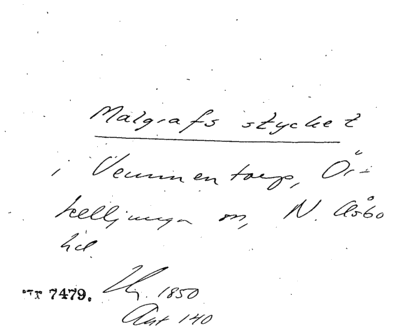 Malgrafs stycket
i Vemmentorp, Ör-
kelljunga sn, N. Åsbo
hd.
7479. 1850
Akt 140